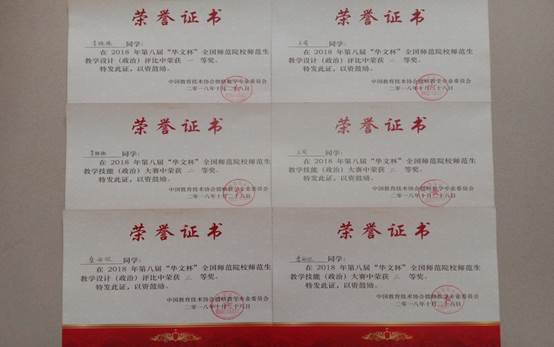 荣誉证书
同学：
在 2018 年第八届“华文杯”全国师范院校师范生
教学设计（政治）评比中荣获 一 等奖。
特发此证，以资鼓励。
中国教育技术协会微格教学专业委员会
二零一八年十月二十八日
荣誉证书
同学：
在 2018 年第八届“华文杯”全国师范院校师范生
教学设计（政治）评比中荣获 一 等奖。
特发此证，以资鼓励。
中国教育技术协会微格教学专业委员会
二零一八年十月二十八日
荣誉证书
同学：
在 2018 年第八届“华文杯”全国师范院校师范生
教学技能（政治）大赛中荣获 二 等奖。
特发此证，以资鼓励。
中国教育技术协会微格教学专业委员会
二零一八年十月二十八日
荣誉证书
同学：
在 2018 年第八届“华文杯”全国师范院校师范生
教学技能（政治）大赛中荣获 二 等奖。
特发此证，以资鼓励。
中国教育技术协会微格教学专业委员会
二零一八年十月二十八日
荣誉证书
同学：
在 2018 年第八届“华文杯”全国师范院校师范生
教学设计（政治）评比中荣获 等奖。
特发此证，以资鼓励。
中国教育技术协会微格教学专业委员会
二零一八年十月二十八日
荣誉证书
同学：
在 2018 年第八届“华文杯”全国师范院校师范生
教学技能（政治）大赛中荣获 等奖。
特发此证，以资鼓励。
中国教育技术协会微格教学专业委员会
二零一八年十月二十八日